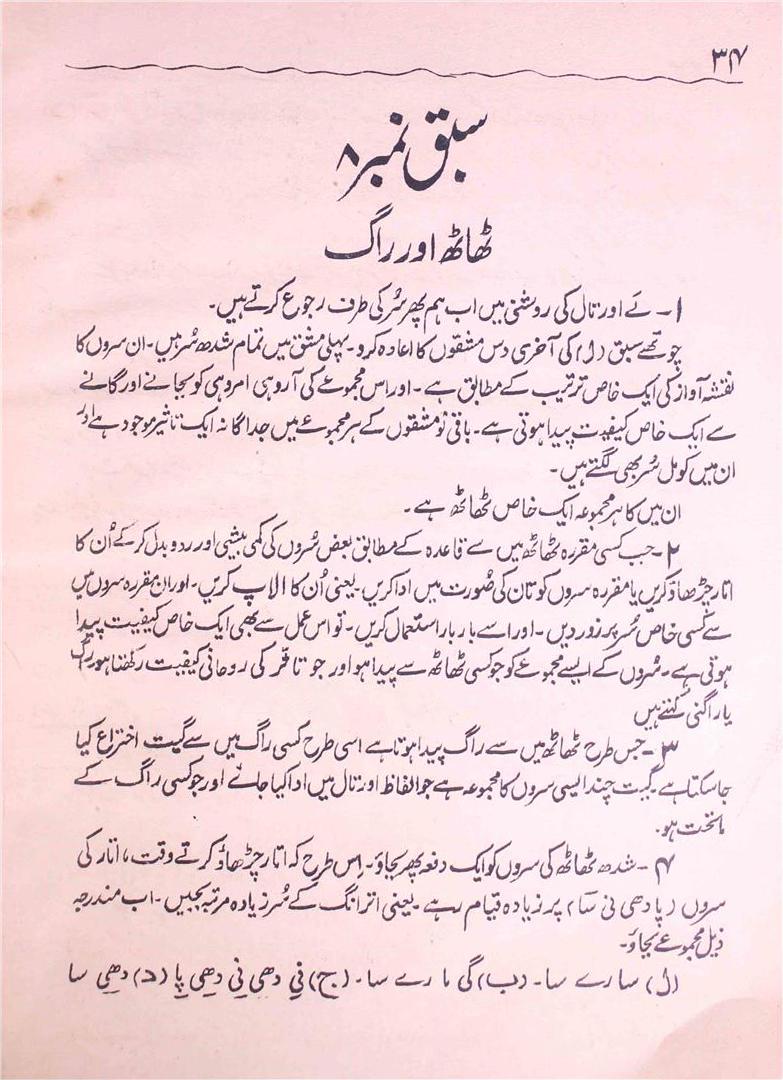 ۳۴
سبق نمبر ۸
ٹھاٹھ اور راگ
۱- لَے اور تال کی روشنی میں اب ہم پھر سُر کی طرف رجوع کرتے ہیں۔
چوتھے سبق (ل) کی آخری دس مشقوں کا اعادہ کرو۔ پہلی مشق میں تمام شدھ سُر ہیں۔ ان سروں کا
نقشہ آواز کی ایک خاص ترتیب کے مطابق ہے۔ اور اس مجموعے کی آروہی امروہی کو بجانے اور گانے
سے ایک خاص کیفیت پیدا ہوتی ہے۔ باقی نو مشقوں کے ہر مجموعے میں جداگانہ ایک تاثیر موجود ہے اور
ان میں کومل سُر بھی لگتے ہیں۔
ان میں کا ہر مجموعہ ایک خاص ٹھاٹھ ہے۔
۲- جب کسی مقررہ ٹھاٹھ میں سے قاعدہ کے مطابق بعض سُروں کی کمی بیشی اور ردوبدل کر کے اُن کا
اتار چڑھاؤ کریں یا مقررہ سروں کو تان کی صُورت میں ادا کریں۔ یعنی اُن کا الاپ کریں۔ اور ان مقررہ سروں میں
سے کسی خاص سُر پر زور دیں۔ اور اسے بار بار استعمال کریں۔ تو اس عمل سے بھی ایک خاص کیفیت پیدا
ہوتی ہے۔ سُروں کے ایسے مجموعے کو جو کسی ٹھاٹھ سے پیدا ہو اور جو تاثر کی روحانی کیفیت رکھتا ہو راگ
یا راگنی کہتے ہیں
۳- جس طرح ٹھاٹھ میں سے راگ پیدا ہوتا ہے اسی طرح کسی راگ میں سے گیت اختراع کیا
جا سکتا ہے۔ گیت چند ایسی سروں کا مجموعہ ہے جو الفاظ اور تال میں ادا کیا جائے اور جو کسی راگ کے
ماتحت ہو۔
۴- شدھ ٹھاٹھ کی سروں کو ایک دفعہ پھر بجاؤ۔ اِس طرح کہ اتار چڑھاؤ کرتے وقت، اتار کی
سروں (پا دھی نی سَا) پر زیادہ قیام رہے۔ یعنی اترانگ کے سُر زیادہ مرتبہ بجیں۔ اب مندرجہ
ذیل مجموعے بجاؤ۔
(ل) سا رے سا۔ (ب) گی ما رے سا۔ (ج) نِی دھی نِی دھِی پِا (د) دھِی سا